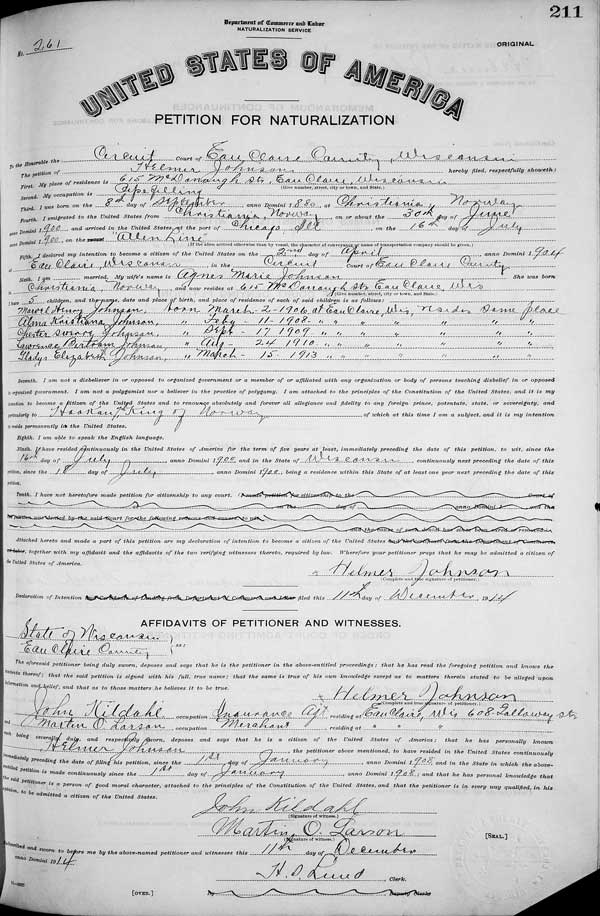 211
Department of Commerce and Labor
NATURALIZATION SERVICE
No. 261
ORIGINAL
UNITED STATES OF AMERICA
PETITION FOR NATURALIZATION
To the Honorable the Circuit Court of Eau Claire County, Wisconsin
The petition of Helmer Johnson hereby filed, respectfully showeth:
First. My place of residence is 615 McDonough Str, Eau Claire, Wisconsin
(Give number, street, city or town, and State.)
Second. My occupation is
Third. I was born on the 8th day of September, anno Domini 1880, at Christiania, Norway
Fourth. I emigrated to the United States from Christiania, Norway, on or about the 30th day of June
anno Domini 1900, and arrived in the United States, at the port of Chicago, Ill on the 16th day of July
anno Domini 1900, on the vessel "Allen Line"
(If the alien arrived otherwise than by vessel, the character of conveyance or name of transportation company should be given.)
Fifth. I declared my intention to become a citizen of the United States on the 2nd day of April, anno Domini 1904
at Eau Claire, Wisconsin, in the Circuit Court of Eau Claire County
Sixth. I am married. My wife's name is Agnes Marie Johnson She was born
Christiania, Norway, and now resides at 615 McDonough Str Eau Claire, Wis
(Give number, street, city or town, and State.)
I have 5 children, and the name, date and place of birth, and place of residence of each of said children is as follows:
Henry Johnson, born March - 2 - 1906, at Eau Claire, Wis, resides same place
Alma Kristiana Johnson, " Feby - 11 - 1908 - " " " " " "
Chester Johnson, " Sept - 17 1909 " " " " " "
Lawrence Bertram Johnson, " Aug - 24 1910 " " " " " "
Gladys Elizabeth Johnson, " March - 15 - 1913 " " " " " "
Seventh. I am not a disbeliever in or opposed to organized government or a member of or affiliated with any organization or body of persons teaching disbelief in or opposed
to organized government. I am not a polygamist nor a believer in the practice of polygamy. I am attached to the principles of the Constitution of the United States, and it is my
intention to become a citizen of the United States and to renounce absolutely and forever all allegiance and fidelity to any foreign prince, potentate, state, or sovereignty, and
particularly to Haakon 7th King of Norway of which at this time I am a subject, and it is my intention
to reside permanently in the United States.
Eighth. I am able to speak the English language.
Ninth. I have resided continuously in the United States of America for the term of five years at least, immediately preceding the date of this petition, to wit, since the
16th day of July, anno Domini 1900 and in the State of Wisconsin, continuously next preceding the date of this
petition, since the 18 day of July, anno Domini 1900, being a residence within this State of at least one year next preceding the date of this
petition.
Tenth. I have not heretofore made petition for citizenship to any court. (I made petition for citizenship to the Court of
at on the day of anno Domini 1 and the
said petition was denied by the said Court for the following reasons and causes, to wit,
and the cause of such denial has since been cured or removed.)
Attached hereto and made a part of this petition are my declaration of intention to become a citizen of the United States and the certificate from the Department of Commerce
and Labor, together with my affidavit and the affidavits of the two verifying witnesses thereto, required by law. Wherefore your petitioner prays that he may be admitted a citizen of
the United States of America.
Helmer Johnson
(Complete and true signature of petitioner.)
Declaration of Intention filed this 11th day of December, 1914
AFFIDAVITS OF PETITIONER AND WITNESSES.
State of Wisconsin
Eau Claire County } ss:
The aforesaid petitioner being duly sworn, deposes and says that he is the petitioner in the above-entitled proceedings; that he has read the foregoing petition and knows the
contents thereof; that the said petition is signed with his full, true name; that the same is true of his own knowledge except as to matters therein stated to be alleged upon
information and belief, and that as to those matters he believes it to be true.
Helmer Johnson
(Complete and true signature of petitioner.)
John Kildahl, occupation Insurance Agt, residing at Eau Claire, Wis 608 Galloway St
and Martin O. Larson, occupation Merchant, residing at " " "
each being severally, duly, and respectively sworn, deposes and says that he is a citizen of the United States of America; that he has personally known
Helmer Johnson, the petitioner above mentioned, to have resided in the United States continuously
immediately preceding the date of filing his petition, since the 1st day of January, anno Domini 1908, and in the State in which the above-
entitled petition is made continuously since the 1st day of January, anno Domini 1908; and that he has personal knowledge that
the said petitioner is a person of good moral character, attached to the principles of the Constitution of the United States, and that the petitioner is in every way qualified, in his
opinion, to be admitted a citizen of the United States.
John Kildahl
(Signature of witness.)
Martin O. Larson
(Signature of witness.)
[SEAL.]
Subscribed and sworn to before me by the above-named petitioner and witnesses this 11th day of December
anno Domini 1914
H. O. Lund, Clerk.
[OVER.]
By Deputy Clerk